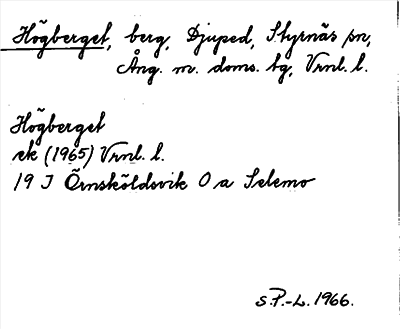 Högberget, berg, Djuped, Styrnäs sn,
Ång. m. doms. tg, Vrnl. l.
Högberget
ek (1965) Vrnl. l.
19 J Örnsköldsvik O a Selemo
S.P.-L. 1966.